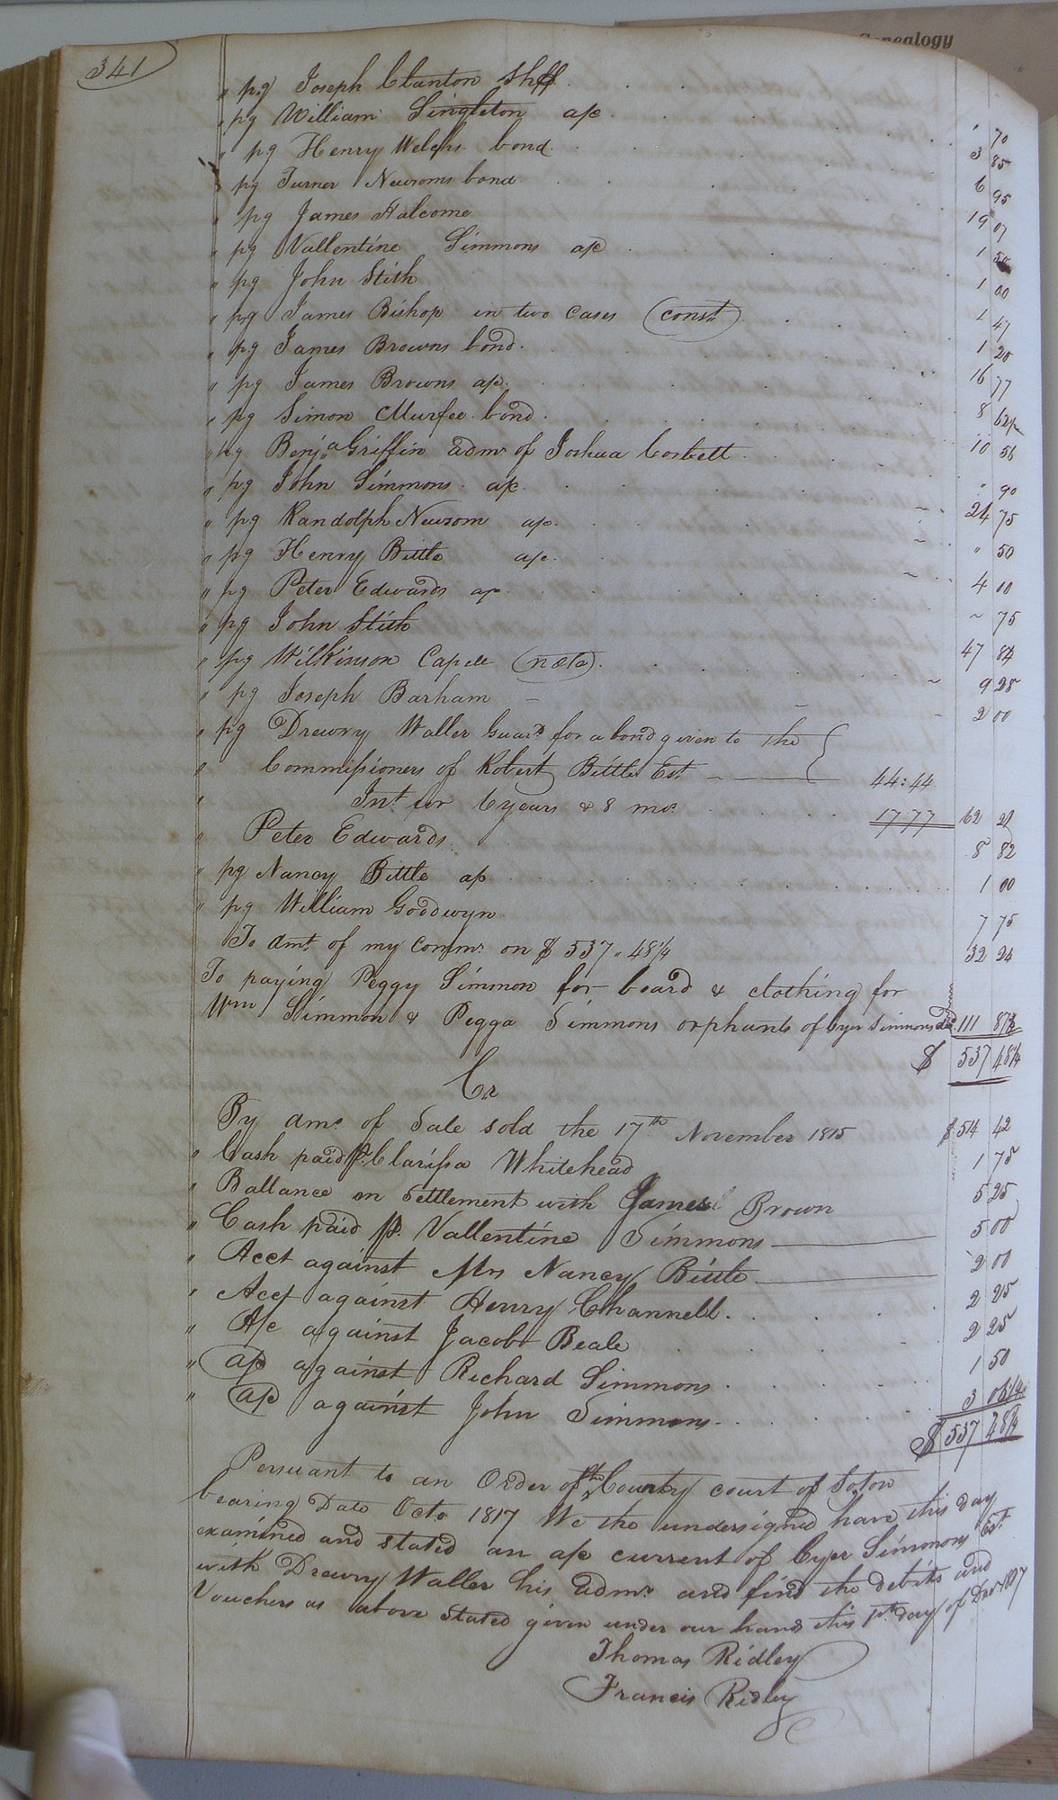 Genealogy
341
" pg Joseph Clanton Shff
" pg William Singleton a/c . . " 70
" pg Henry Welchs bond . . 3 85
" pg Turner Newsoms bond . . 6 95
" pg James Halcome 19 07
" pg Vallentine Simmons a/c . . 1 50
" pg John Stith 1 00
" pg James Bishop in two cases (const) . . 1 47
" pg James Browns bond . . 1 20
" pg James Browns a/c . . 16 77
" pg Simon Murfee bond . . 8 62½
" pg Benja Griffin admr of Joshua Corbett . . 10 56
" pg John Simmons a/c . . " 90
" pg Randolph Newsom a/c . . 24 75
" pg Henry Bittle a/c . . " 50
" pg Peter Edwards a/c 4 00
" pg John Stith ~ 75
" pg Wilkinson Capell (note) . . 47 84
" pg Joseph Barham – 9 28
" pg Drewry Waller Guard for a bond given to the 2 00
" Commissioners of Robert Bittles Est — 44:44
" Int for 6 years & 8 mos 1777 62 21
" Peter Edwards 8 82
" pg Nancy Bittle a/c . . 1 00
" pg William Goodwyn 7 75
To amt of my comms on $ 537 " 48¼ 32 24
To paying Peggy Simmon for board & clothing for
Wm Simmon & Pegga Simmons orphants of Cyer Simmons decd 111 87½
$ 537 48¼
Cr
By amt of Sale sold the 17th November 1815 $514 42
" Cash paid pr Clarissa Whitehead 1 75
" Ballance on Settlement with James Brown 5 25
" Cash paid pr Vallentine Simmons — 5 00
" Acct against Mrs Nancy Bittle — 2 00
" Acct against Henry Channell . . 2 25
" A/c against Jacob Beale 2 25
" a/c against Richard Simmons . . 1 50
" a/c against John Simmons . . 3 06¼
$ 537 48¼
Persuant to an Order of the County court of Soton
bearing Date Octo 1817 We the undersigned have this day
examined and stated an a/c current of Cyer Simmons Est
with Drewry Waller his admr and find the debits and
Vouchers as above stated given under our hands this 1st day of Decr 1817
Thomas Ridley
Francis Ridley